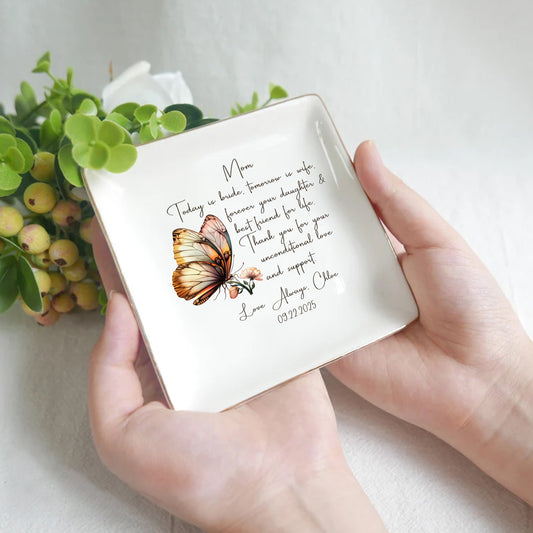 Mom
Today is bride, tomorrow is wife,
forever your daughter &
best friend for life.
Thank you for your
unconditional love
and support
Love Always, Chloe
09.22.2025